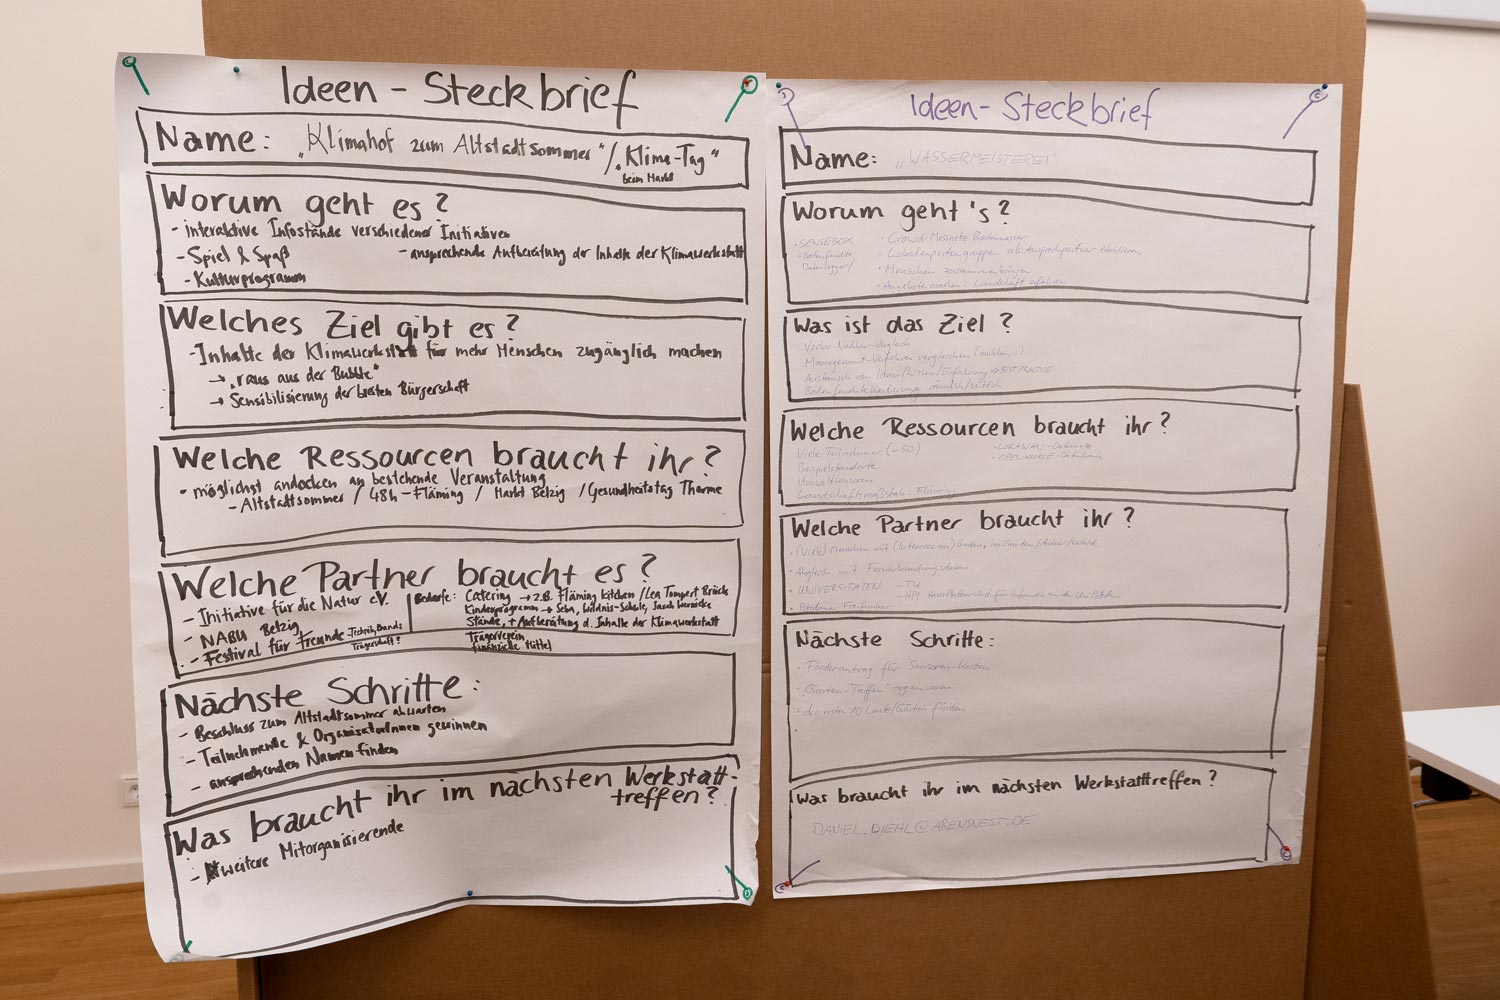 Ideen - Steckbrief
Name: „Klimahof zum Altstadtsommer"/„Klima-Tag"
beim Markt
Worum geht es?
- interaktive Infostände verschiedener Initiativen
- Spiel & Spaß
- ansprechende Aufbereitung der Inhalte der Klimawerkstatt
- Kulturprogramm
Welches Ziel gibt es?
- Inhalte der Klimawerkstatt für mehr Menschen zugänglich machen
→ „raus aus der Bubble"
→ Sensibilisierung der breiten Bürgerschaft
Welche Ressourcen braucht ihr?
• möglichst andocken an bestehende Veranstaltung
- Altstadtsommer / 48h-Fläming / Markt Belzig / Gesundheitstag Therme
Welche Partner braucht es?
- Initiative für die Natur e.V.
- NABU Belzig
- Festival für Freunde - Technik, Bands
Trägerschaft?
Bedarfe: Catering → z.B. Fläming kitchen /
Kinderprogramm → Wildnis-Schule,
Stände, + Aufbereitung d. Inhalte der Klimawerkstatt
Trägerverein
finanzielle Mittel
Nächste Schritte:
- Beschluss zum Altstadtsommer abwarten
- Teilnehmende & OrganisatorInnen gewinnen
- ansprechenden Namen finden
Was braucht ihr im nächsten Werkstatt-
treffen?
- weitere Mitorganisierende
Ideen - Steckbrief
Name: „WASSERMEISTEREI"
Worum geht's?
• SENSEBOX
• Bodenfeuchte-
Datenlogger/
• Crowd-Messnetz Bodenwasser
• Lokalexpertengruppe als Ansprechpartner etablieren
• Menschen zusammenbringen
• Angebote machen: Landschaft erfahren
Was ist das Ziel?
Vorher-Nachher-Vergleich
Management-Verfahren vergleichen (mulchen,...)
Austausch von Ideen/Wissen/Erfahrung → BEST PRACTICE
Bodenfeuchtekartierung räumlich/zeitlich
Welche Ressourcen braucht ihr?
Viele Teilnehmer (~50)
Beispielstandorte
Umweltsensoren
Landschaftsmaßstab: Fläming
• LORAWAN-Datennetz
• OPENSOURCE-Datenbank
Welche Partner braucht ihr?
• (Viele) Menschen mit (Interesse an) Boden, in Garten/Acker/Wald
• Abgleich mit Fernerkundungsdaten
• UNIVERSITÄTEN - TU
- HPI
• Potsdamer Freifunker
Nächste Schritte:
• Förderantrag für Sensoren-Kosten
• „Garten-Treffen" organisieren
• die ersten 10 Leute/Gärten finden
Was braucht ihr im nächsten Werkstatttreffen?
DANIEL.DIEHL@ARENSNEST.DE